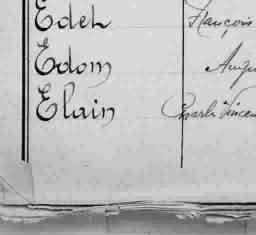 Edeh François
Edom Augu
Elain Charles Vincen